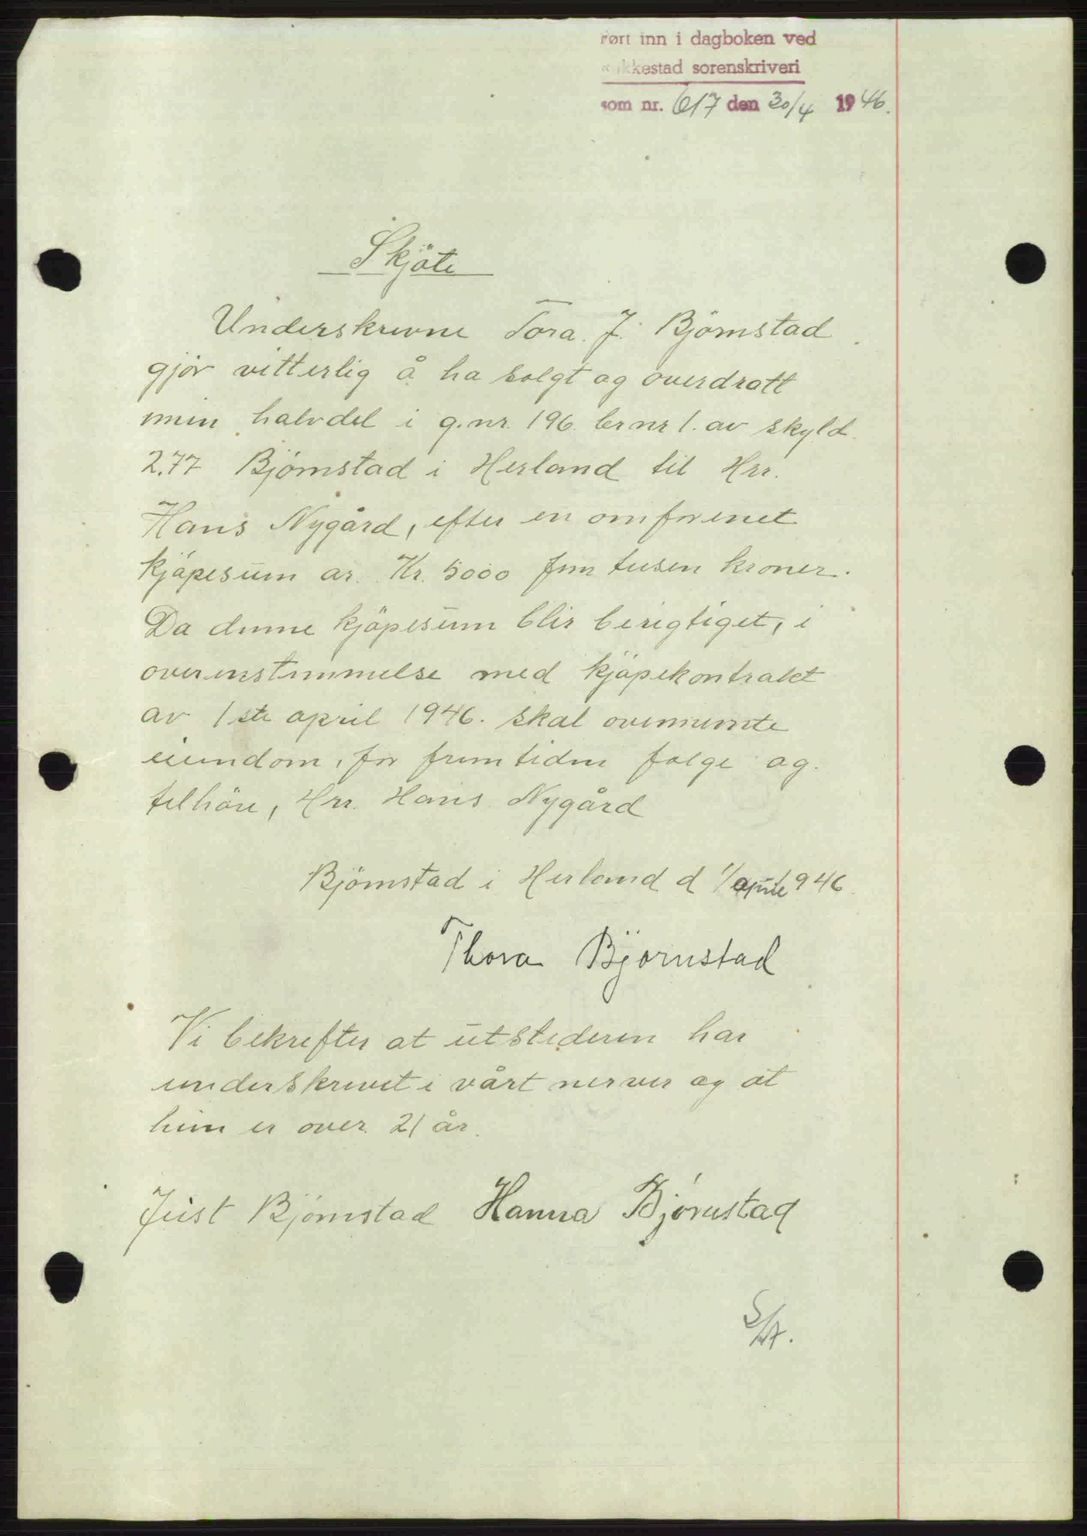 ført inn i dagboken ved
kkestad sorenskriveri
som nr. 617 den 30/4 1946.
Skjöte
Underskrevne Tora. J. Bjørnstad
gjör vitterlig å ha solgt og overdratt
min halvdel i g.nr. 196. br nr 1. av skyld
2.77 Bjørnstad i Herland til Hrr.
Hans Nygård, efter en omforenet
kjöpesum av. Kr. 5000 fem tusen kroner.
Da denne kjöpesum blir berigtiget, i
overenstemmelse med kjöpekontrakt
av 1ste april 1946. skal ovennemte
eiendom, for fremtiden følge og.
tilhöre, Hrr. Hans Nygård
Bjørnstad i Herland d 1/april 1946.
Thora Björnstad
Vi bekrefter at utstederen har
underskrevet i vårt nerver og at
hun er over 21 år.
Just Bjørnstad Hanna Bjørnstad